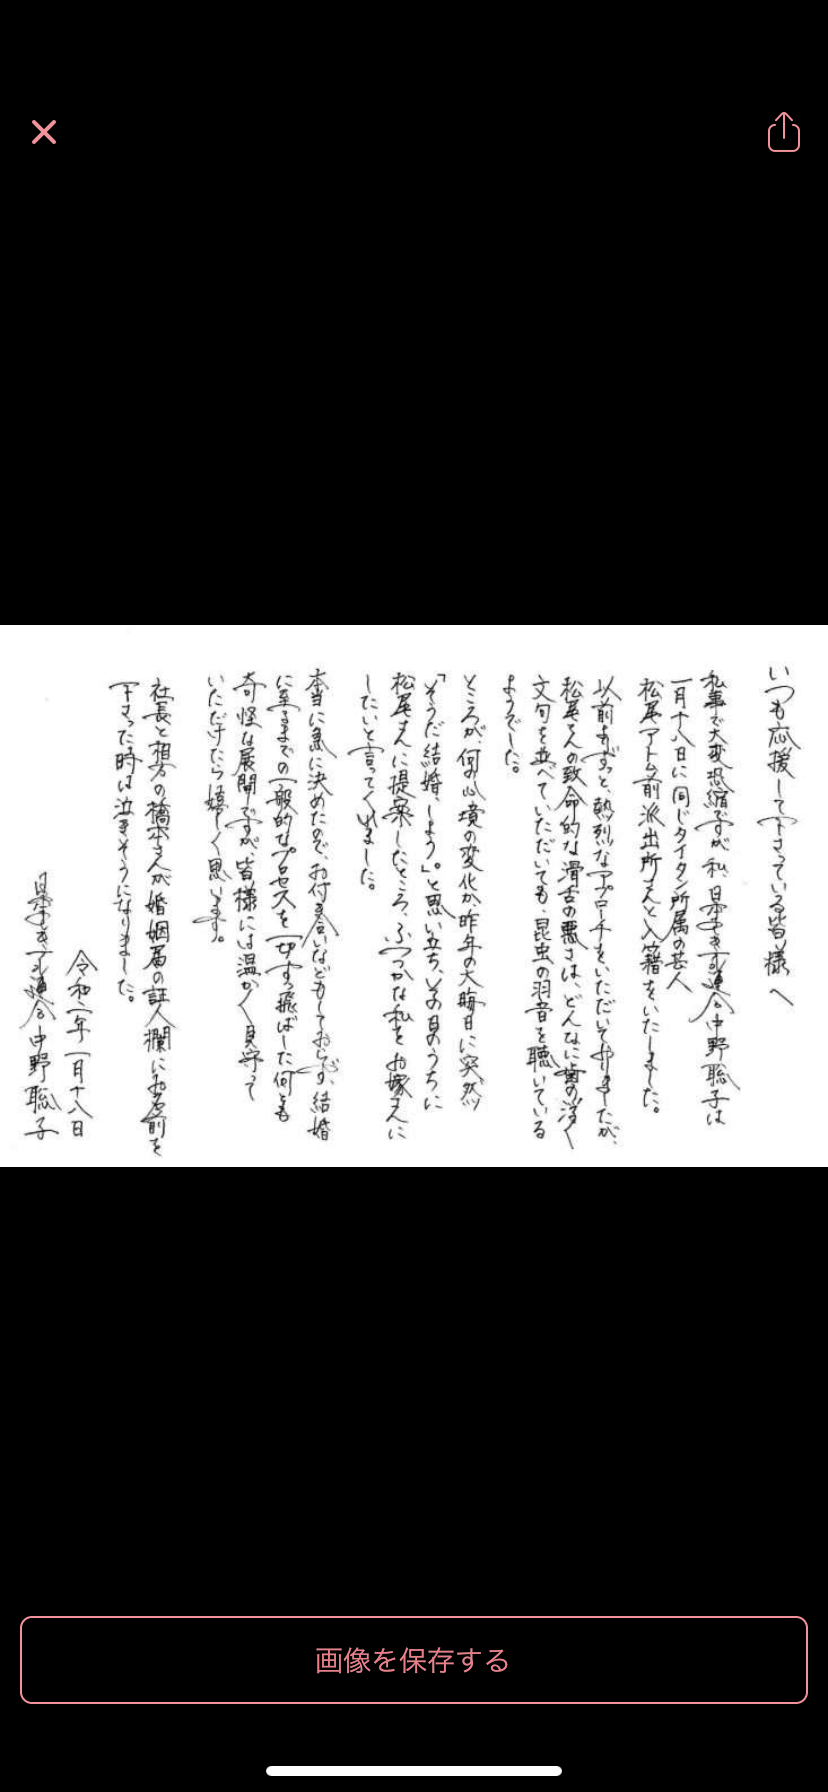 いつも応援して下さっている皆様へ
私事で大変恐縮ですが、私、日本エレキテル連合 中野聡子は
一月十八日に同じタイタン所属の芸人
松尾アトム前派出所さんと入籍をいたしました。
以前よりずっと、熱烈なアプローチをいただいておりましたが、
松尾さんの致命的な滑舌の悪さは、どんなに歯の浮く
文句を並べていただいても、昆虫の羽音を聴いている
ようでした。
ところが、何の心境の変化か昨年の大晦日に突然
「そうだ結婚、しよう。」と思い立ち、その日のうちに
松尾さんに提案したところ、ふつつかな私をお嫁さんに
したいと言ってくれました。
本当に急に決めたので、お付き合いなどもしておらず、結婚
に至るまでの一般的なプロセスを一切すっ飛ばした何とも
奇怪な展開ですが、皆様には温かく見守って
いただけたら嬉しく思います。
社長と相方の橋本さんが婚姻届の証人欄にお名前を
下さった時は泣きそうになりました。
令和二年一月十八日
日本エレキテル連合 中野聡子
画像を保存する